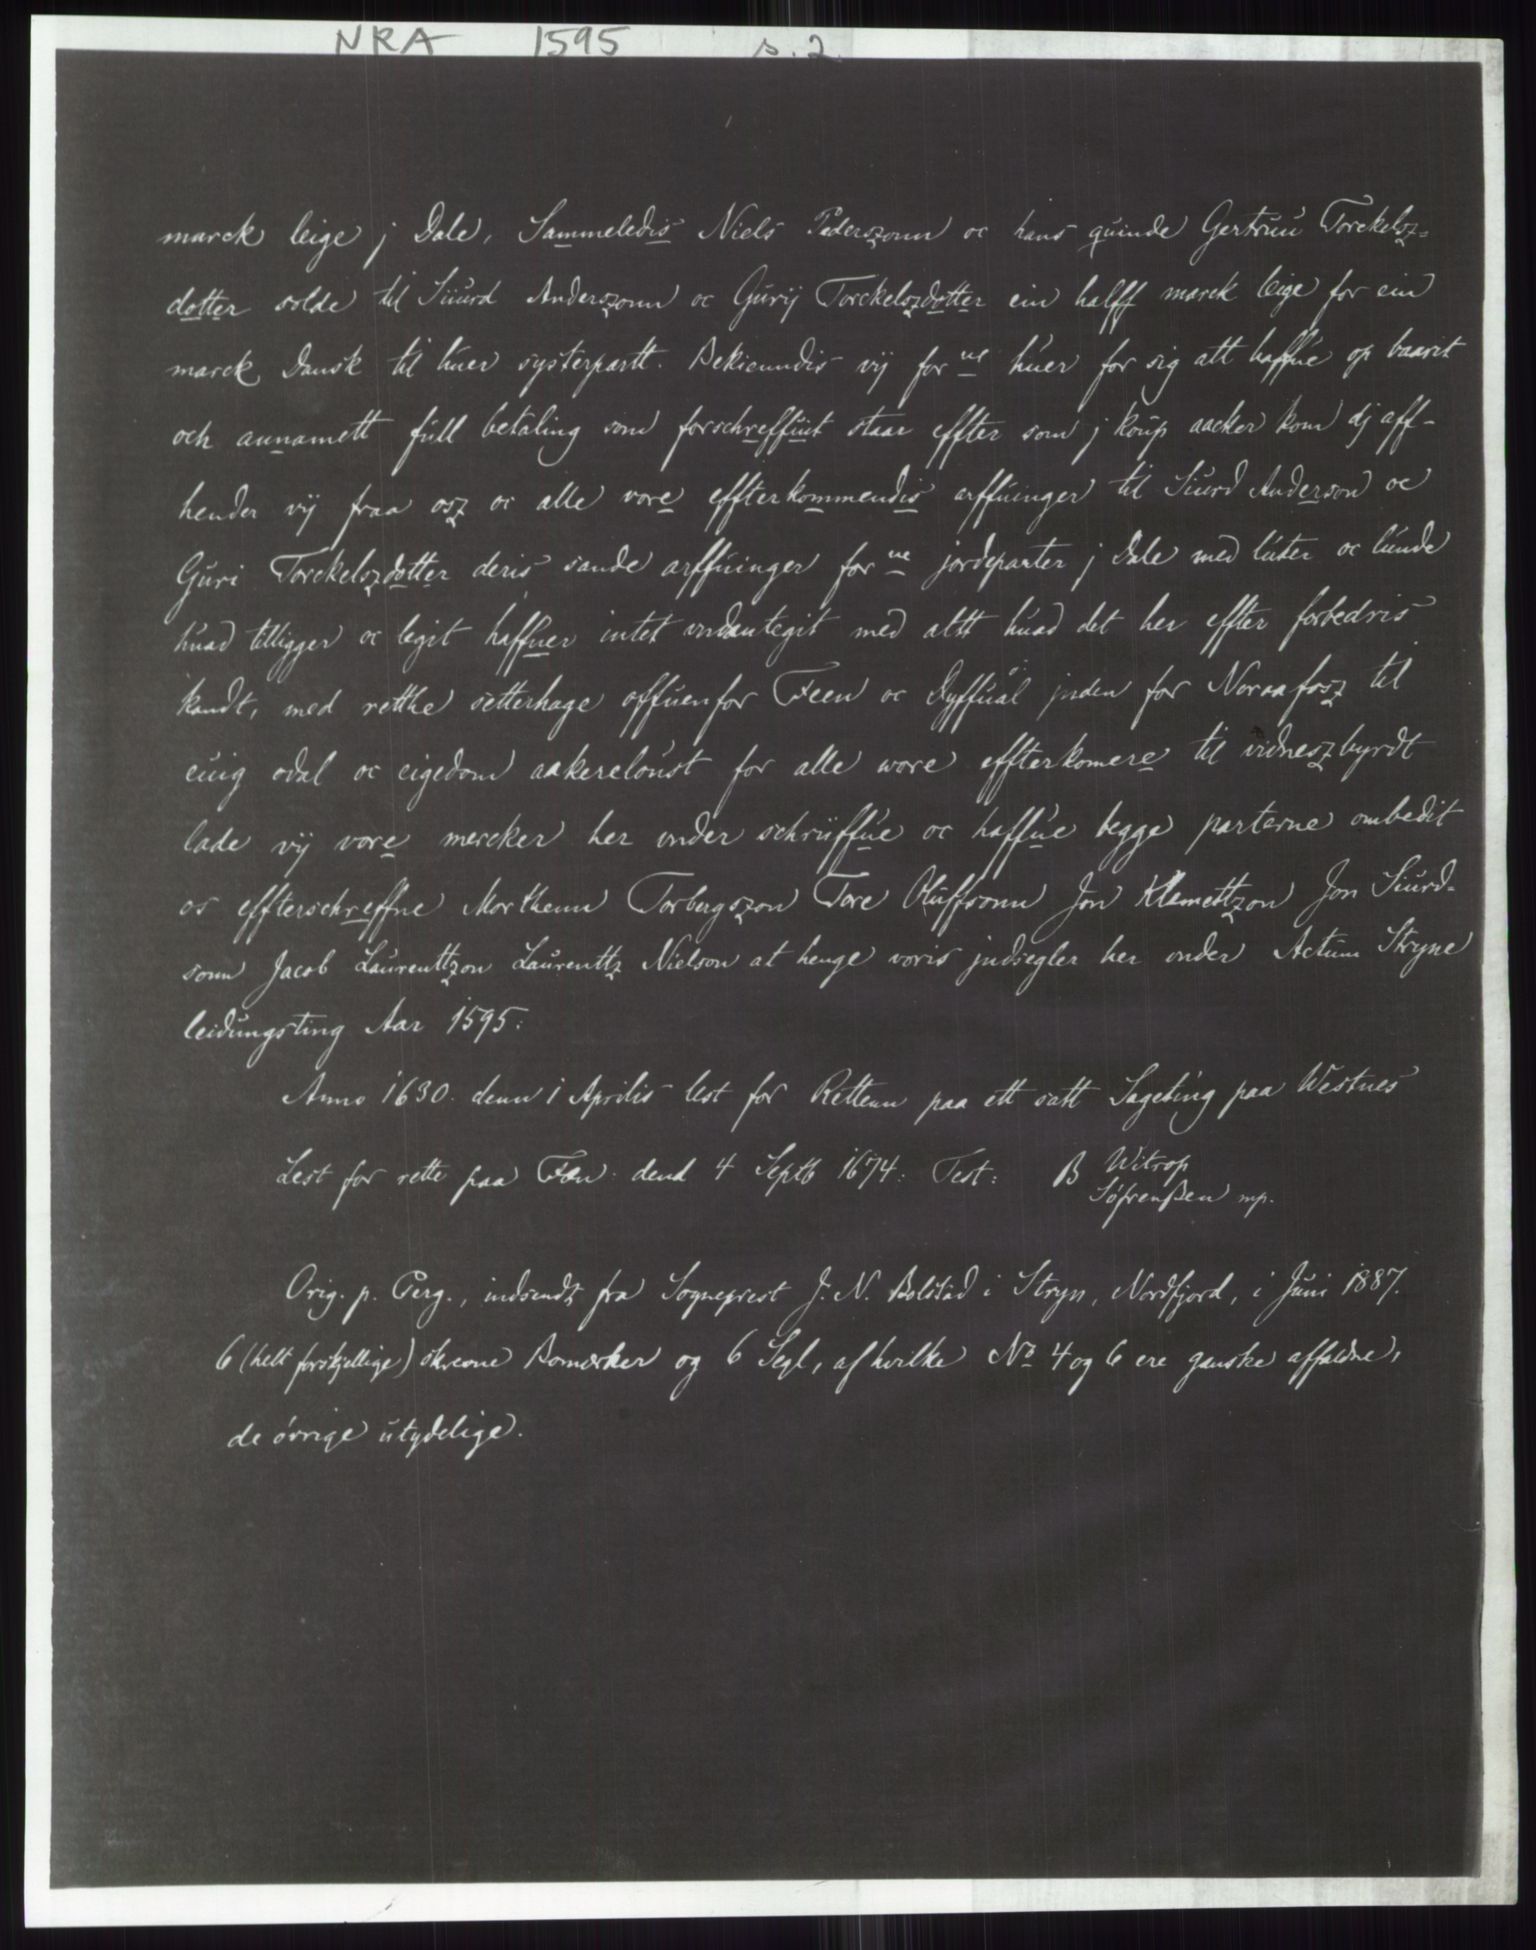 NRA 1595 s. 2.
marck leige j Dale, Sammeledis Niels Pederszonn oc hans quinde Gertruu Torckelsz-
dotter solde til Siiurd Anderszonn oc Gurij Torckelszdotter ein halff marck leige for ein
marck Dansk til huer systerpartt. Bekienndis vij for ne huer for sig att haffue op baarit
och annamett full betaling som forschreffuit staar effter som j koup aacker kom dj aff-
hender vij fraa osz oc alle vore effterkommendis arffuinger til Siiurd Anderson oc
Guri Torckelszdotter deris sande arffuinger for ne jordeparter j Dale med luter oc lunde
huad tilligger oc legit haffuer intet vndantegit med altt huad det her effter forbedris
kandt, med rettke setterhage offuenfor Feen oc Dyffual jnden for Noraafosz til
euig odal oc eigedom aakereloust for alle wore effterkomere til vidneszbyrdt
lade vij vore mercker her vnder schriiffue oc haffue begge parterne ombedit
os effterschreffne Morthenn Torbergszon Tore Oluffsonn Jon Klemettzon Jon Siiurd-
sonn Jacob Laurenttzon Laurenttz Nielson at henge voris jndsegler her vnder Actum Stryne
leidungsting Aar 1595:
Anno 1630. denn 1 Aprilis lest for Rettenn paa ett satt Sageting paa Westnes
Lest for rette paa Fæn dend 4 Septb 1674: Test: B Witrop
Söfrenßen mp.
Orig. p. Perg., indsendt fra Sogneprest J. N. Bolstad i Stryn, Nordfjord, i Juni 1887.
6 (helt forskjellige) skrevne Bomærker og 6 Segl, af hvilke No 4 og 6 ere ganske affaldne,
de övrige utydelige.